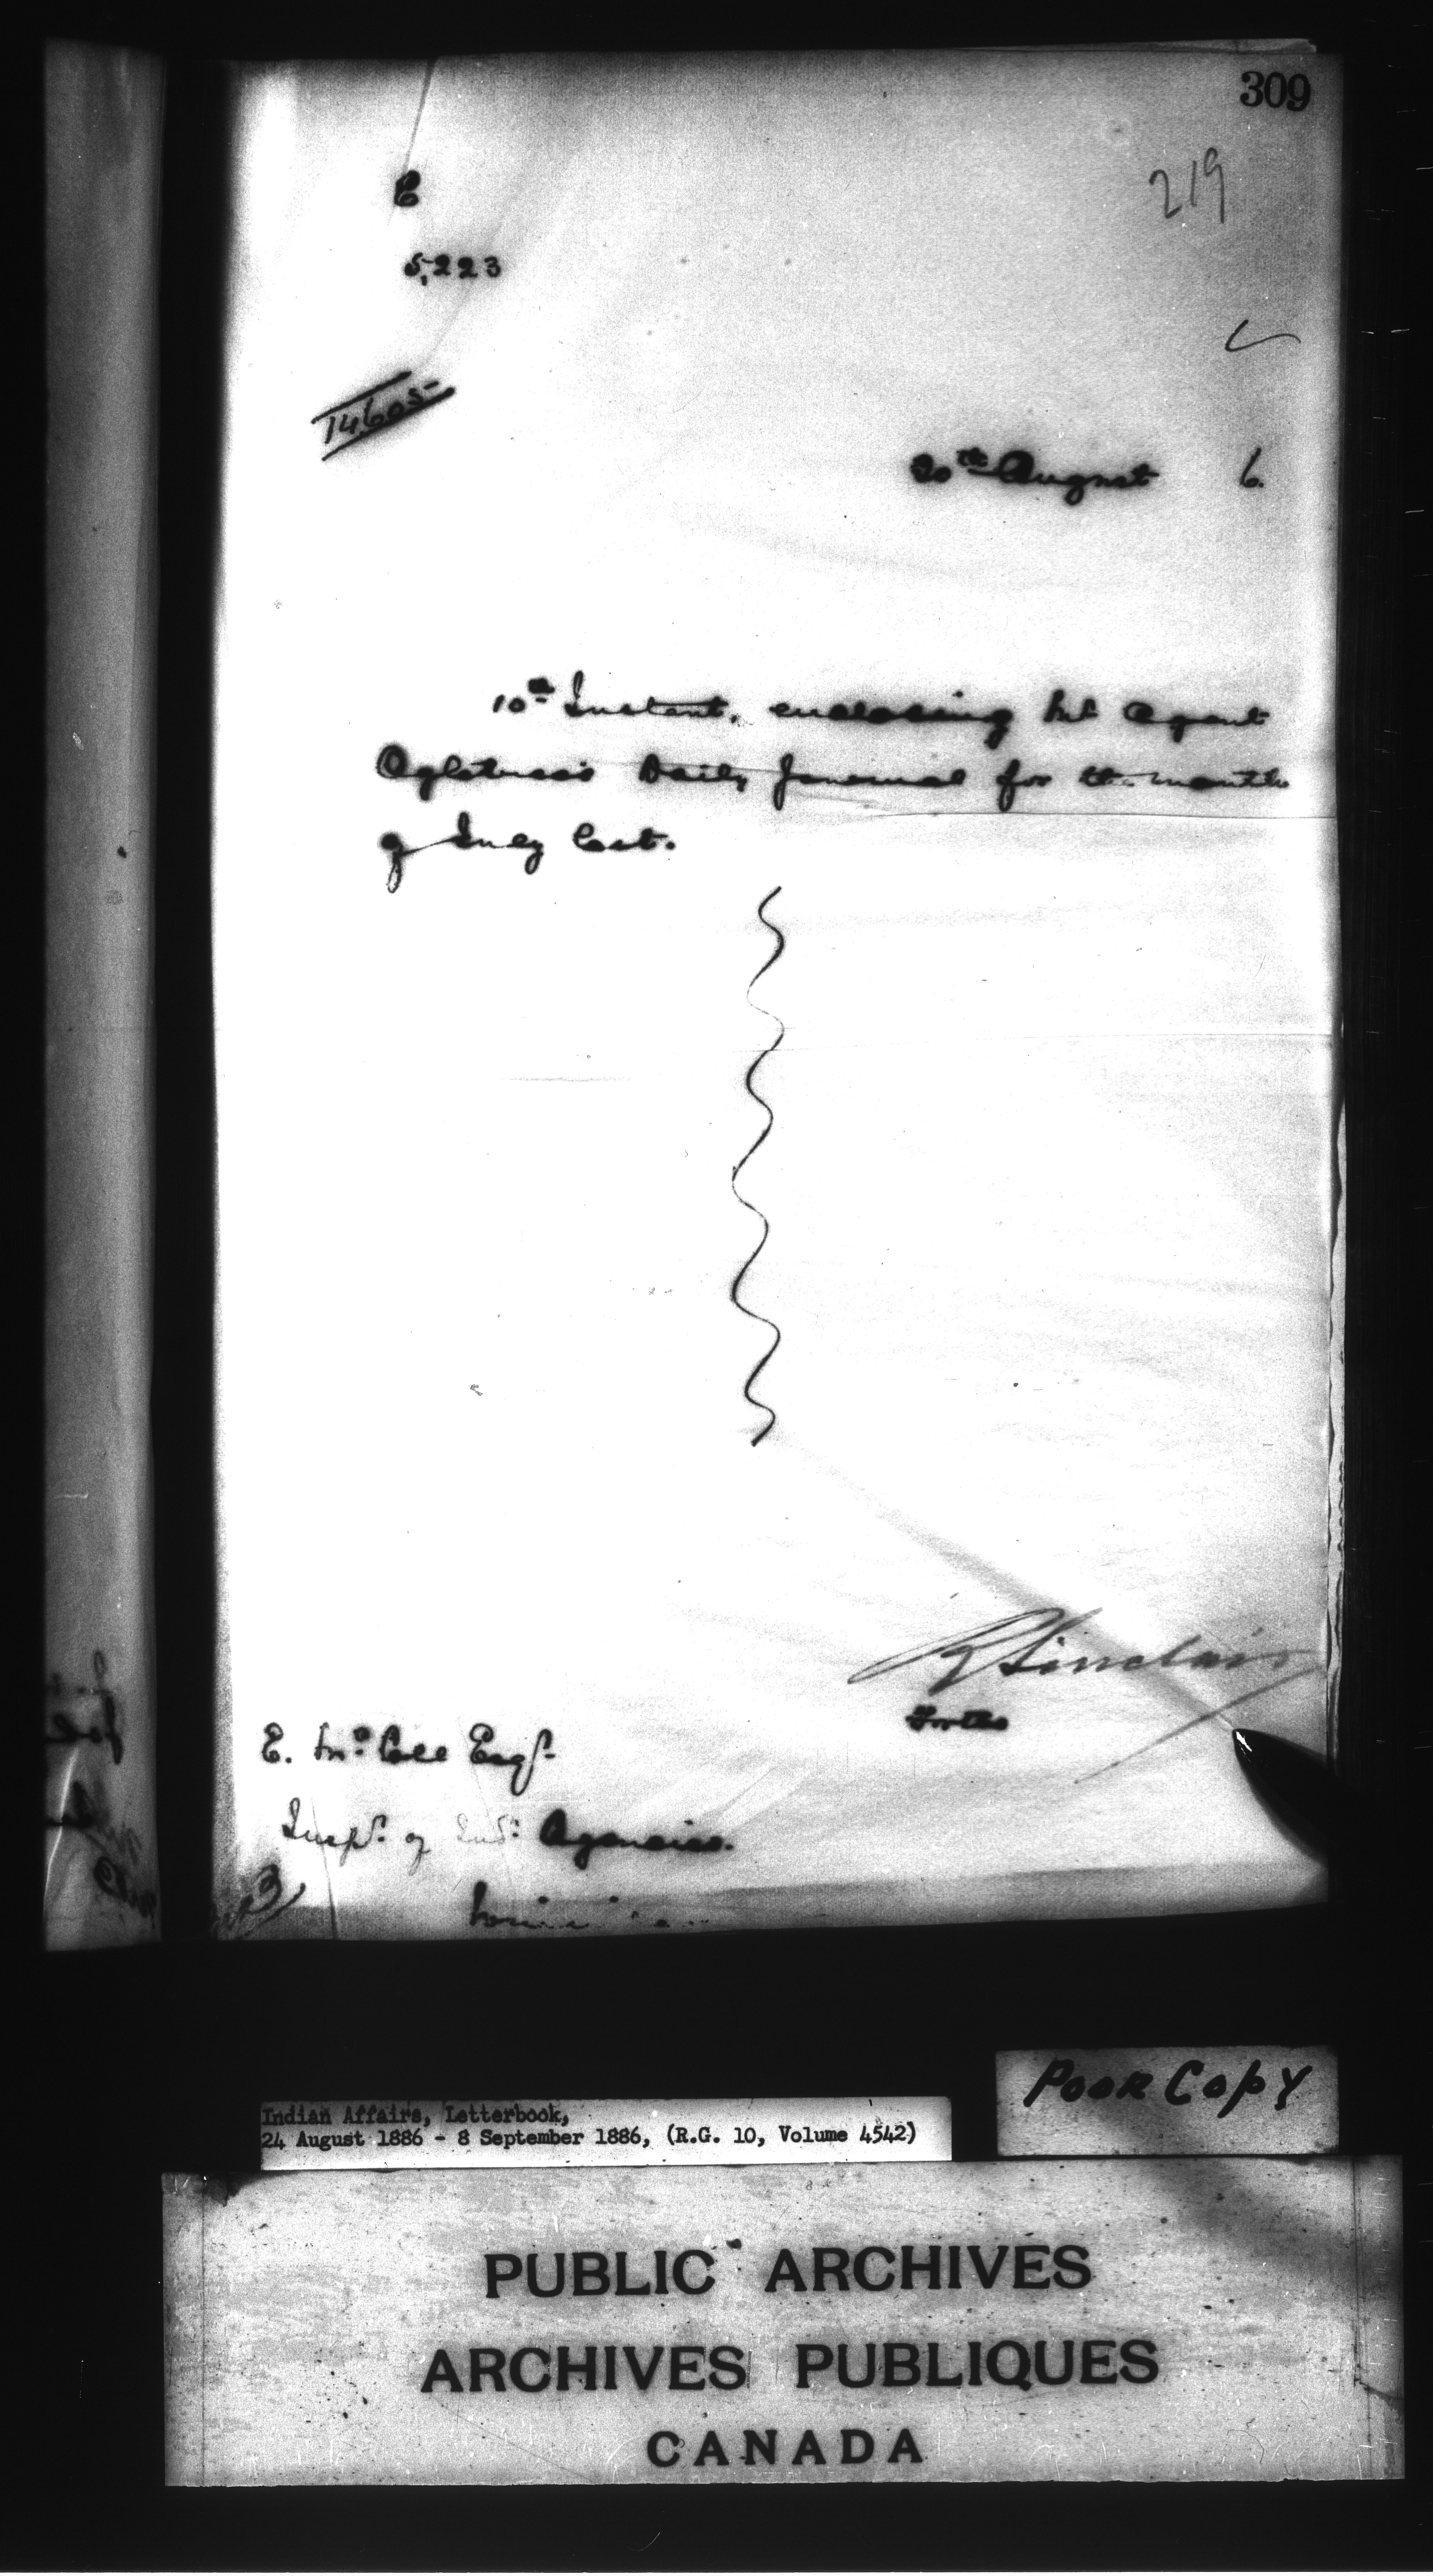 309
219
5,223
14605
August 6.
10th Instant, enclosing Mr Agent
Daily Journal for the month
of July last.
R Sinclair
For the
E. McColl Esqr.
Inspr. of Ind: Agencies.
Poor Copy
Indian Affairs, Letterbook,
24 August 1886 - 8 September 1886, (R.G. 10, Volume 4542)
PUBLIC ARCHIVES
ARCHIVES PUBLIQUES
CANADA